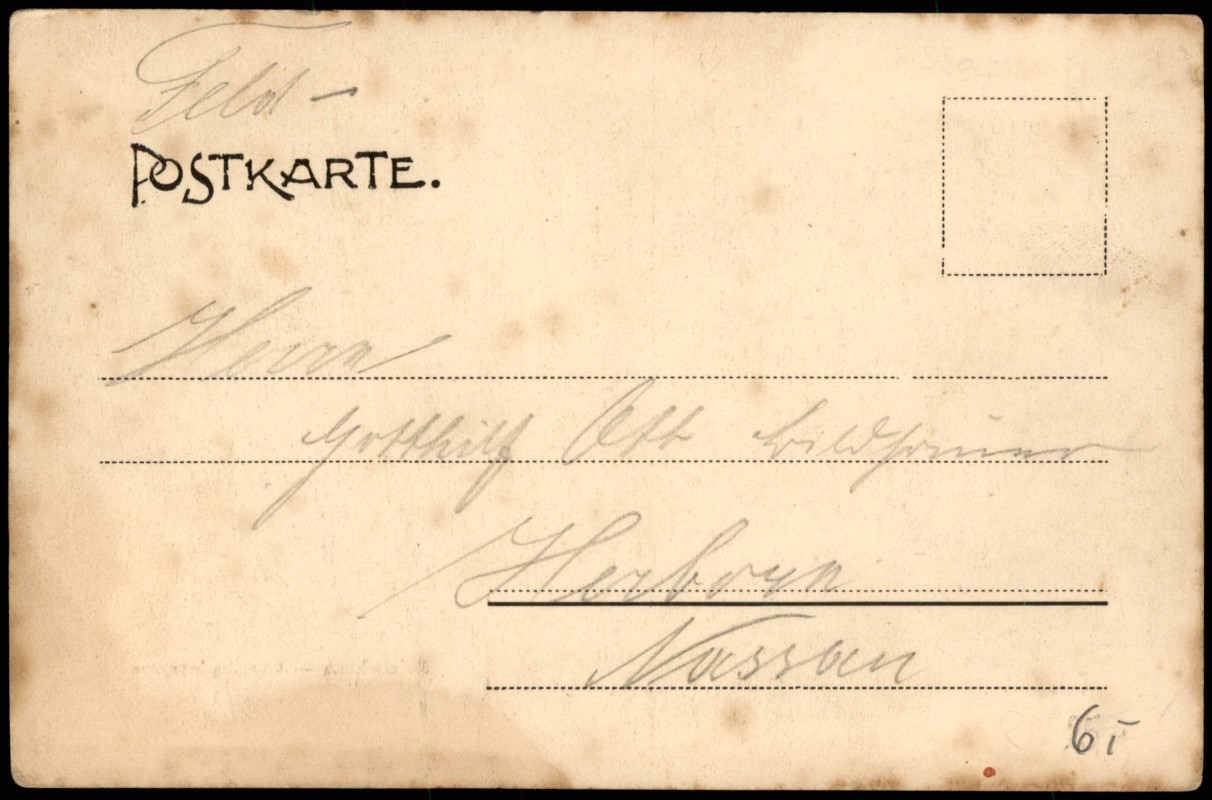 Feld-
POSTKARTE.
Herrn
Gotthilf Ott Bildhauer
Herborn
Nassau